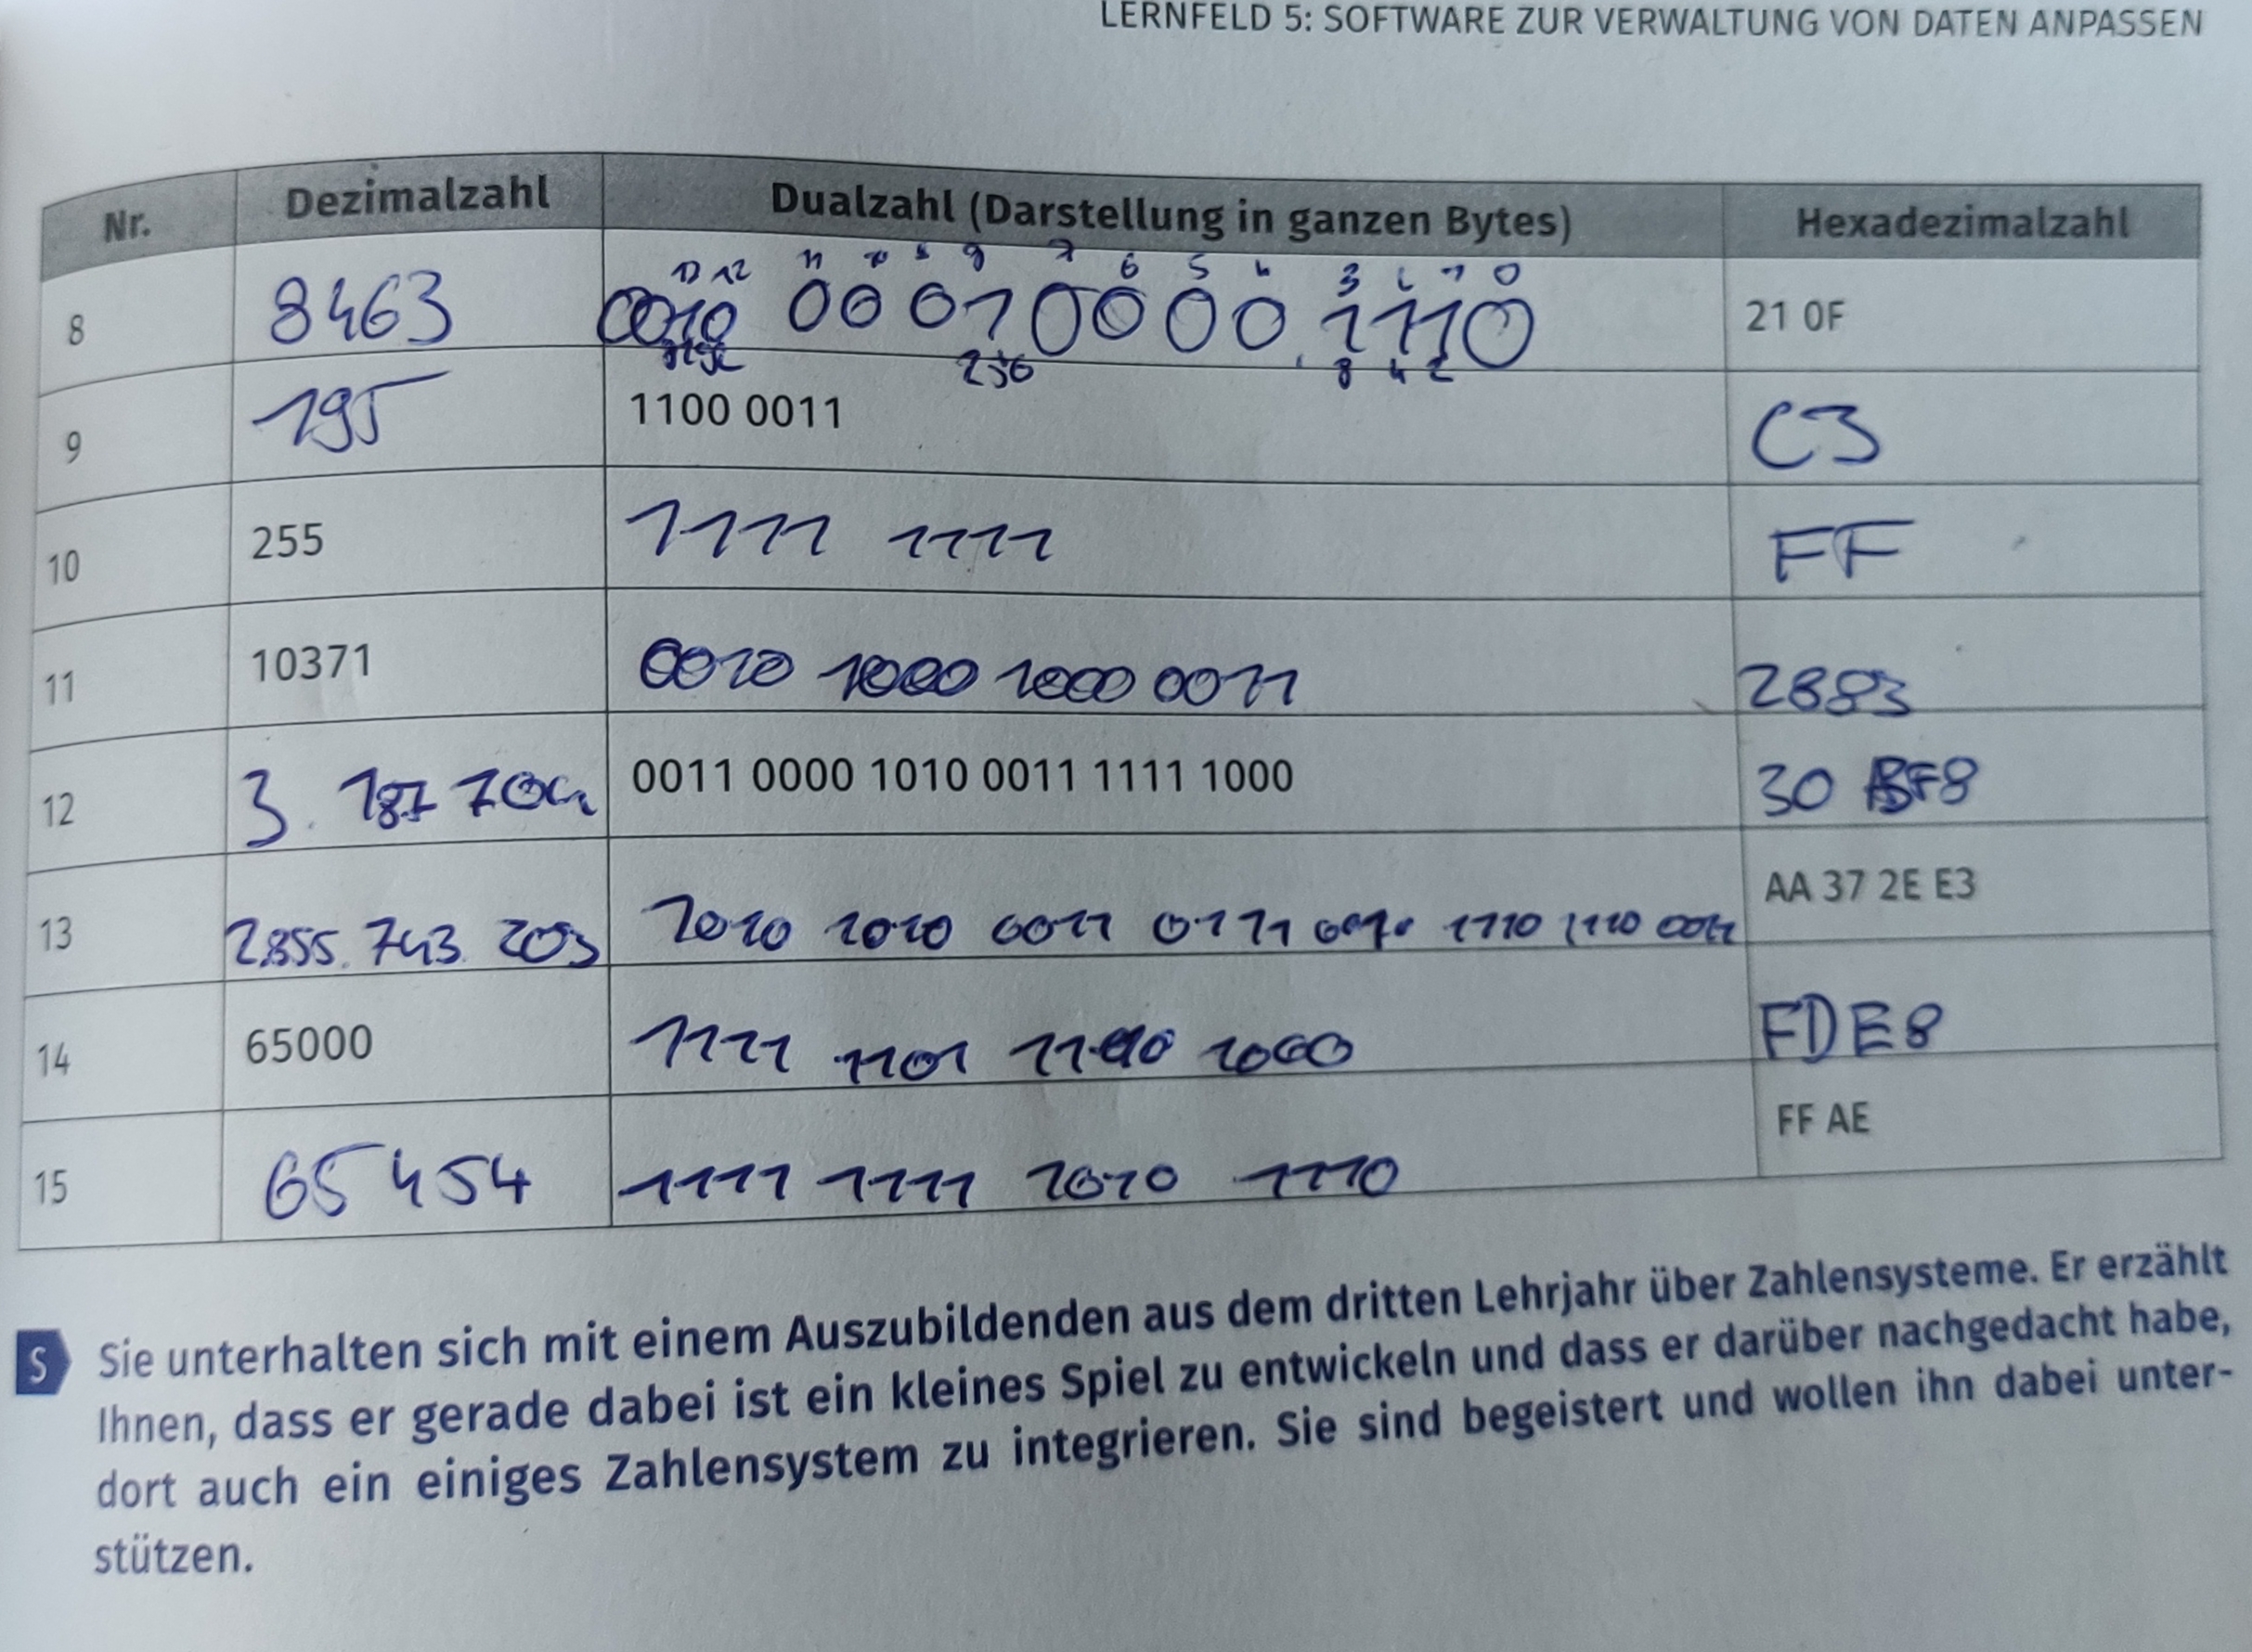 LERNFELD 5: SOFTWARE ZUR VERWALTUNG VON DATEN ANPASSEN
Nr. Dezimalzahl Dualzahl (Darstellung in ganzen Bytes) Hexadezimalzahl
13 12 11 10 8 9 7 6 5 4 3 2 1 0
8 8463 0010 0001 0000 1110 21 0F
8192 256 8 4 2
9 195 1100 0011 C3
10 255 1111 1111 FF
11 10371 0010 1000 1000 0011 2883
12 3.187 704 0011 0000 1010 0011 1111 1000 30 F8
13 2.855.743.203 1010 1010 0011 0111 0010 1110 1110 0011 AA 37 2E E3
14 65000 1111 1101 1110 1000 FDE8
15 65454 1111 1111 1010 1110 FF AE
S Sie unterhalten sich mit einem Auszubildenden aus dem dritten Lehrjahr über Zahlensysteme. Er erzählt
Ihnen, dass er gerade dabei ist ein kleines Spiel zu entwickeln und dass er darüber nachgedacht habe,
dort auch ein einiges Zahlensystem zu integrieren. Sie sind begeistert und wollen ihn dabei unter-
stützen.